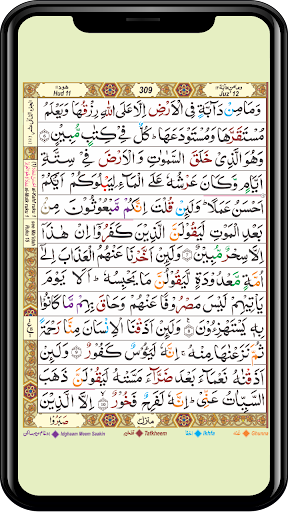 هود ۱۱
Hud 11
309
وما من دابة ۱۲
Juz' 12
وَمَا مِنْ دَآبَّةٍ فِی الْاَرْضِ اِلَّا عَلَی اللّٰهِ رِزْقُهَا وَیَعْلَمُ
مُسْتَقَرَّهَا وَمُسْتَوْدَعَهَا ؕ كُلٌّ فِیْ كِتٰبٍ مُّبِیْنٍ ﴿۶﴾
وَهُوَ الَّذِیْ خَلَقَ السَّمٰوٰتِ وَالْاَرْضَ فِیْ سِتَّةِ
اَیَّامٍ وَّكَانَ عَرْشُهٗ عَلَی الْمَآءِ لِیَبْلُوَكُمْ اَیُّكُمْ
اَحْسَنُ عَمَلًا ؕ وَلَئِنْ قُلْتَ اِنَّكُمْ مَّبْعُوْثُوْنَ مِنْۢ
بَعْدِ الْمَوْتِ لَیَقُوْلَنَّ الَّذِیْنَ كَفَرُوْۤا اِنْ هٰذَاۤ
اِلَّا سِحْرٌ مُّبِیْنٌ ﴿۷﴾ وَلَئِنْ اَخَّرْنَا عَنْهُمُ الْعَذَابَ اِلٰۤی
اُمَّةٍ مَّعْدُوْدَةٍ لَّیَقُوْلُنَّ مَا یَحْبِسُهٗ ؕ اَلَا یَوْمَ
یَاْتِیْهِمْ لَیْسَ مَصْرُوْفًا عَنْهُمْ وَحَاقَ بِهِمْ مَّا كَانُوْا
بِهٖ یَسْتَهْزِءُوْنَ ﴿۸﴾ وَلَئِنْ اَذَقْنَا الْاِنْسَانَ مِنَّا رَحْمَةً
ثُمَّ نَزَعْنٰهَا مِنْهُ ۚ اِنَّهٗ لَیَئُوْسٌ كَفُوْرٌ ﴿۹﴾ وَلَئِنْ
اَذَقْنٰهُ نَعْمَآءَ بَعْدَ ضَرَّآءَ مَسَّتْهُ لَیَقُوْلَنَّ ذَهَبَ
السَّیِّاٰتُ عَنِّیْ ؕ اِنَّهٗ لَفَرِحٌ فَخُوْرٌ ﴿۱۰﴾ اِلَّا الَّذِیْنَ
صَبَرُوْا
منزل ۳
Idgheam Meem Saakin
Tafkheem
Ikhfa
Ghunna